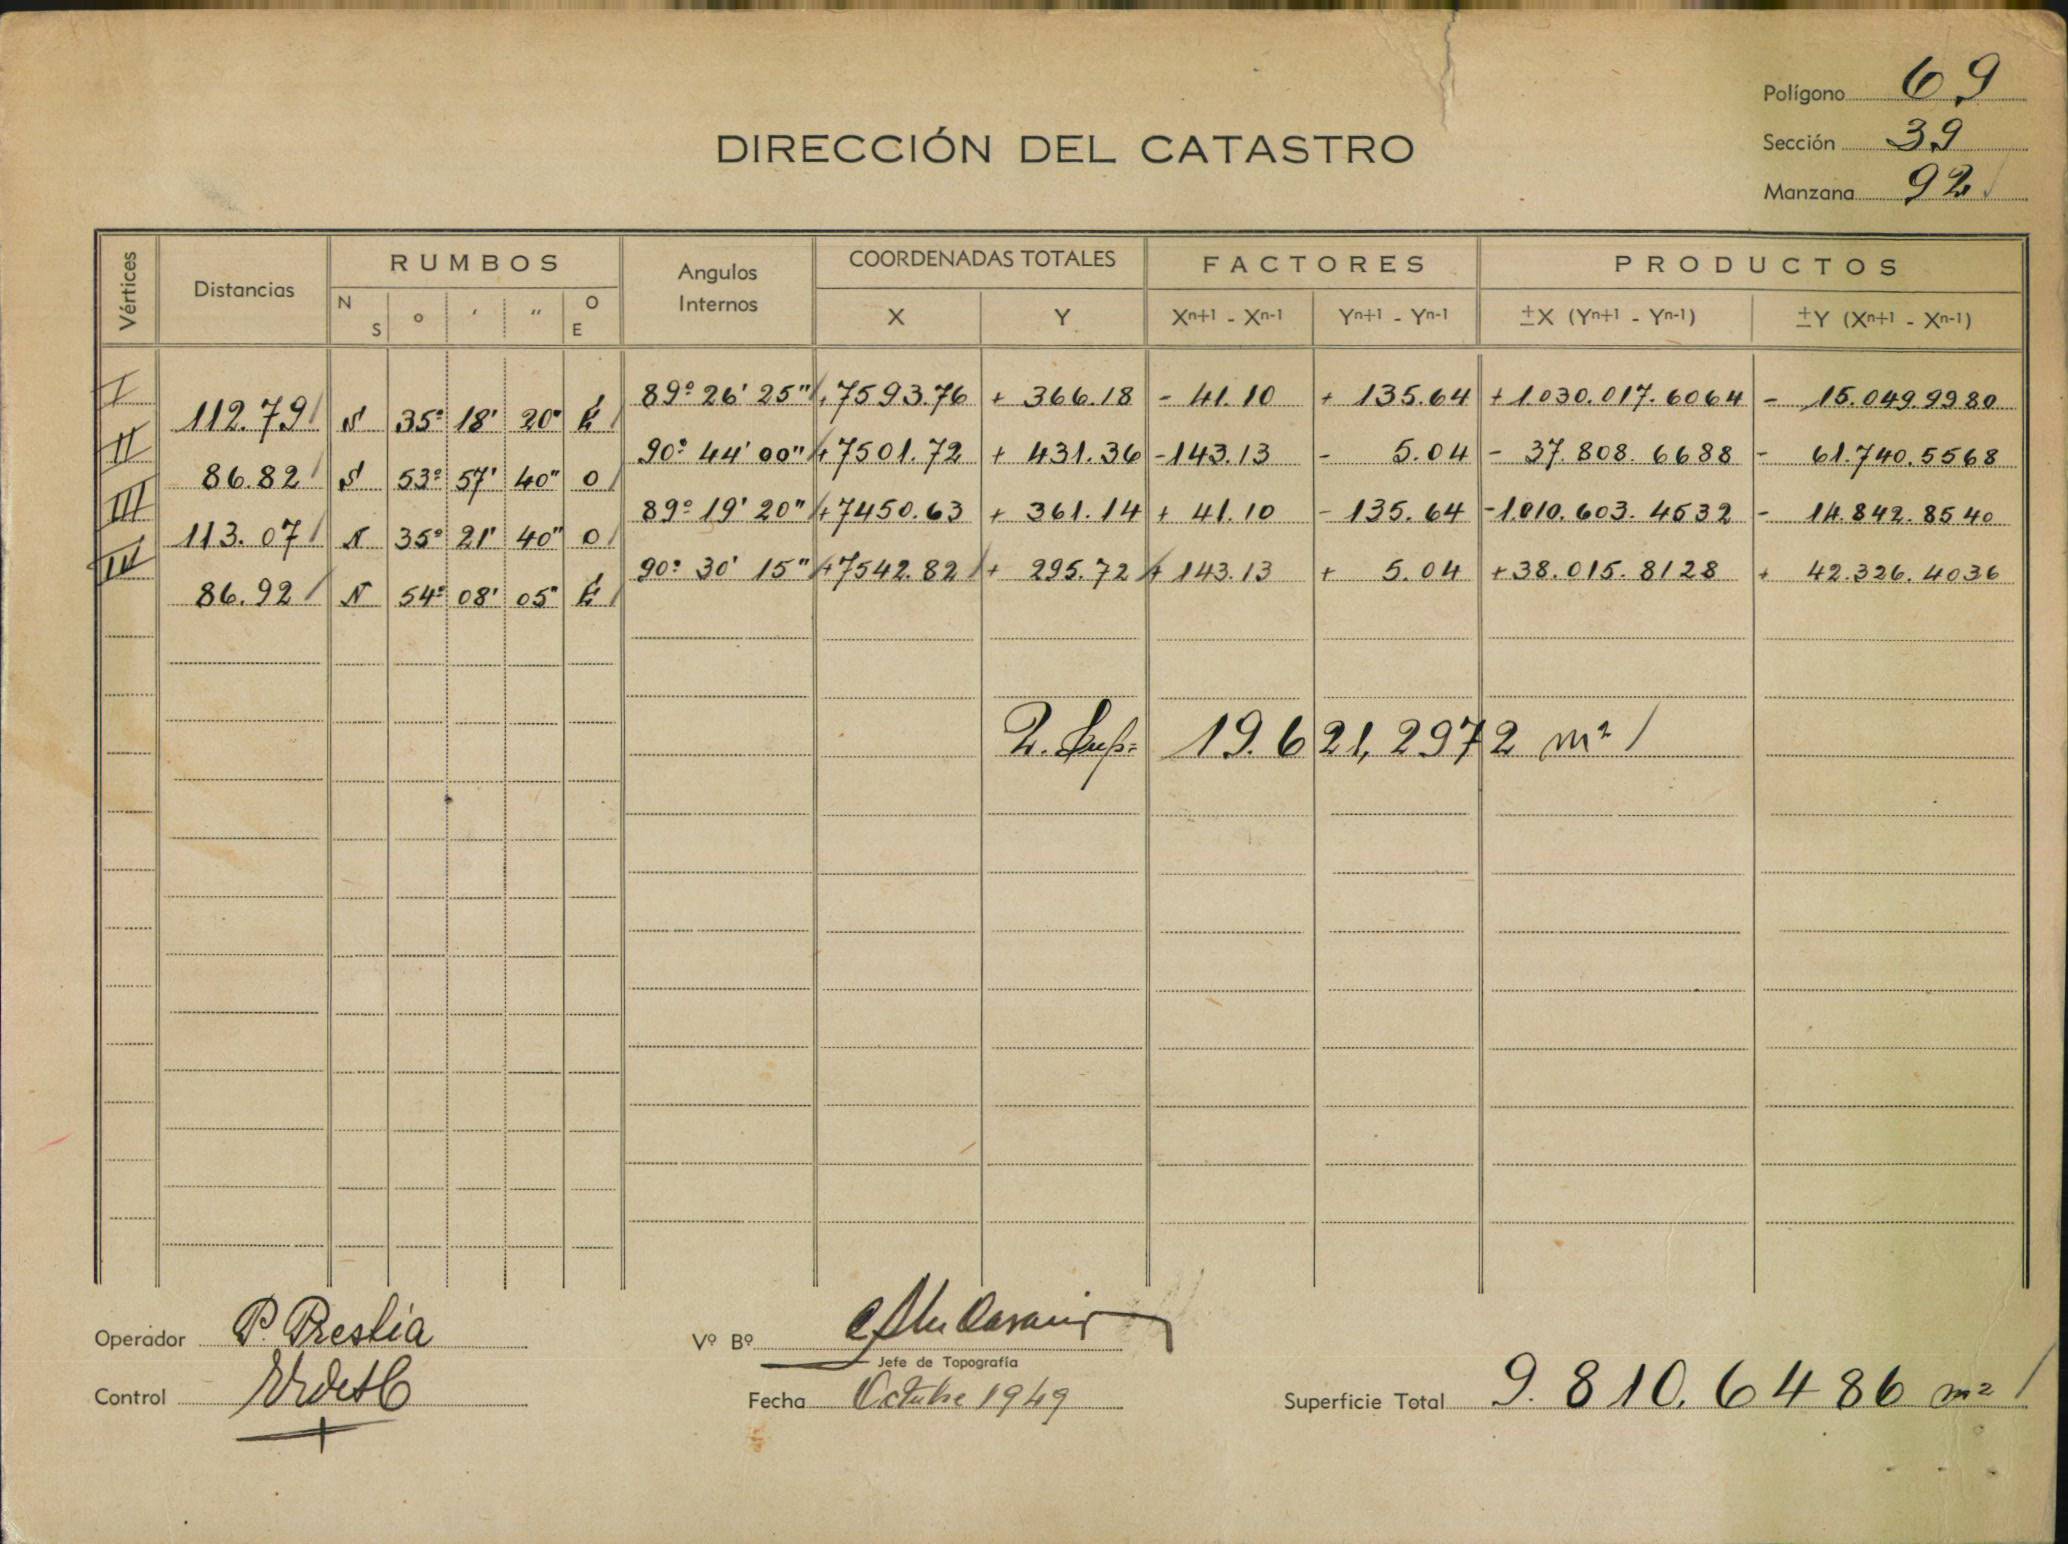 Polígono 69
Sección 39
Manzana 92
DIRECCIÓN DEL CATASTRO
Vértices Distancias RUMBOS Angulos Internos COORDENADAS TOTALES FACTORES PRODUCTOS
N S ° ′ ″ O E X Y Xn+1 - Xn-1 Yn+1 - Yn-1 ±X (Yn+1 - Yn-1) ±Y (Xn+1 - Xn-1)
I 89º 26' 25" +7593.76 + 366.18 - 41.10 + 135.64 +1.030.017.6064 - 15.049.9980
112.79 S 35º 18' 20" E
II 90º 44' 00" +7501.72 + 431.36 -143.13 - 5.04 - 37.808.6688 - 61.740.5568
86.82 S 53º 57' 40" O
III 89º 19' 20" +7450.63 + 361.14 + 41.10 - 135.64 -1.010.603.4532 - 14.842.8540
113.07 N 35º 21' 40" O
IV 90º 30' 15" +7542.82 + 295.72 + 143.13 + 5.04 +38.015.8128 + 42.326.4036
86.92 N 54º 08' 05" E
2. Sup. 19.621,2972 m²
Operador P. Prestia
Control
Vº Bº
Jefe de Topografía
Fecha Octubre 1949
Superficie Total 9.810.6486 m²